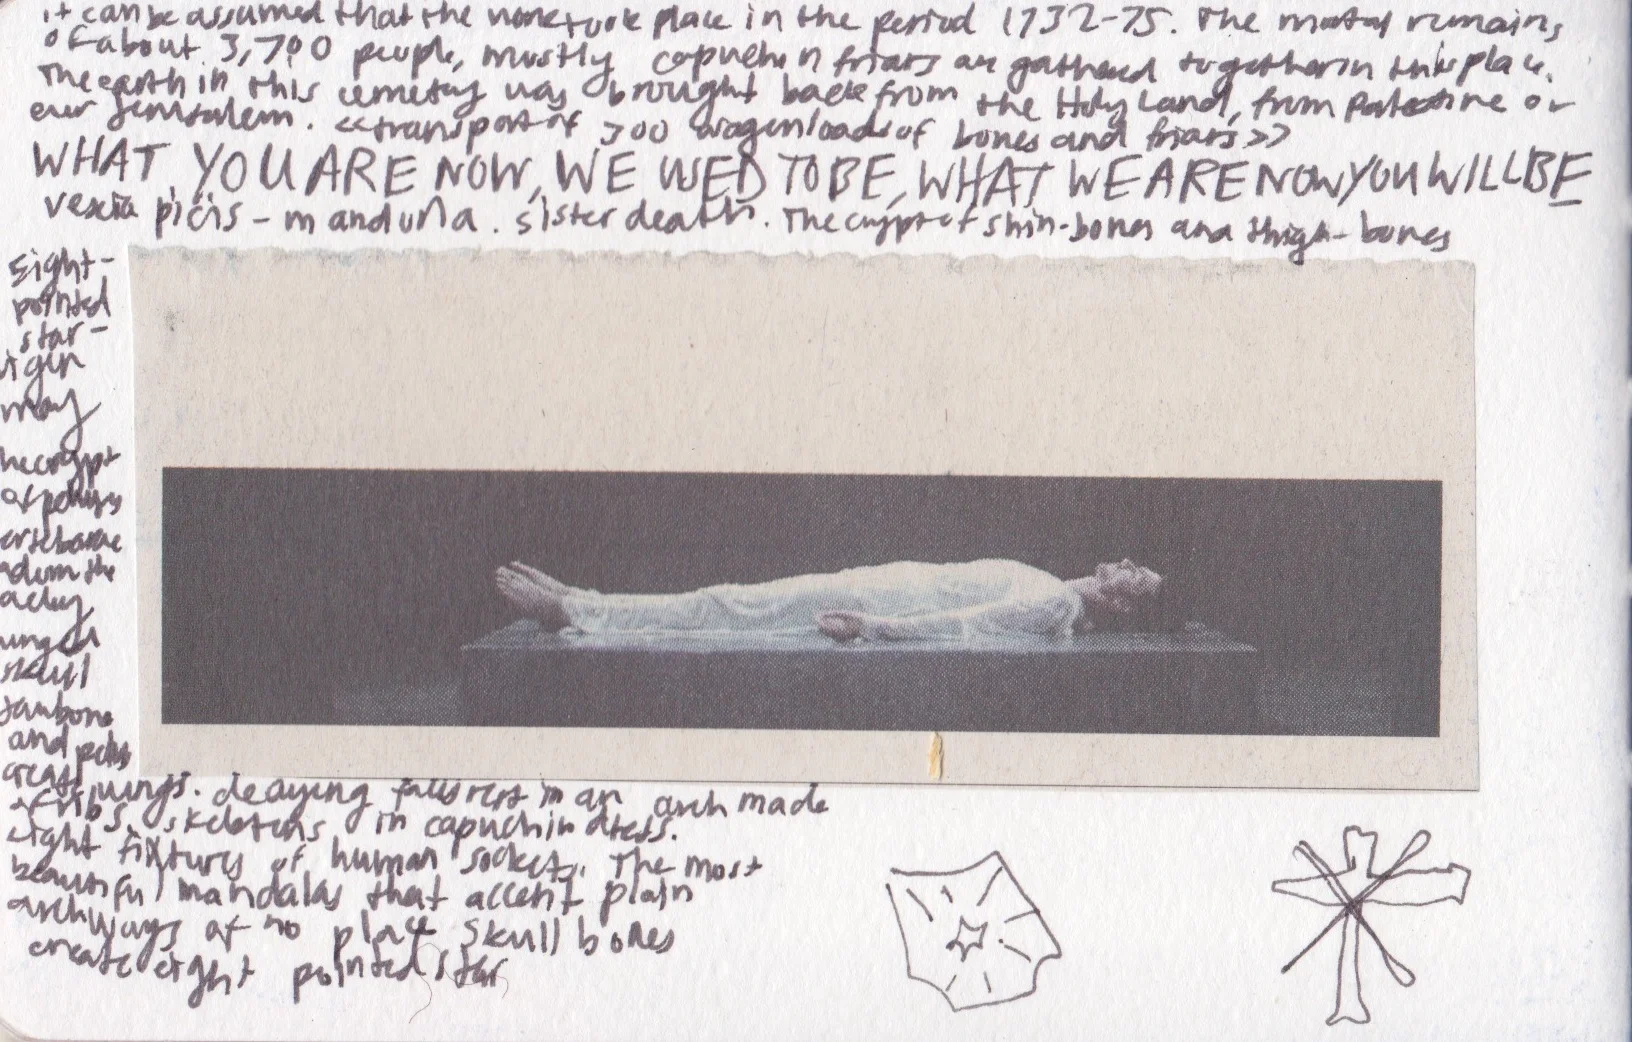 it can be assumed that the work took place in the period 1732-75. The mortal remains
of about 3,700 people, mostly capuchin friars are gathered together in this place.
The earth in this cemetery was brought back from the Holy Land, from Palestine or
over Jerusalem. <<transport of 300 wagonloads of bones and friars>>
WHAT YOU ARE NOW, WE USED TO BE, WHAT WE ARE NOW YOU WILL BE
piscis - mandorla. sister death. The crypt of shin-bones and thigh-bones
Eight-
pointed
star-
may
crypt
of pelvis
adorn the
skull
and pelvis
wings. decaying rest in an arch made
of ribs. skeletons in capuchin dress.
light fixtures of human sockets. The most
beautiful mandalas that accent plain
archways at no place skull bones
create eight pointed star